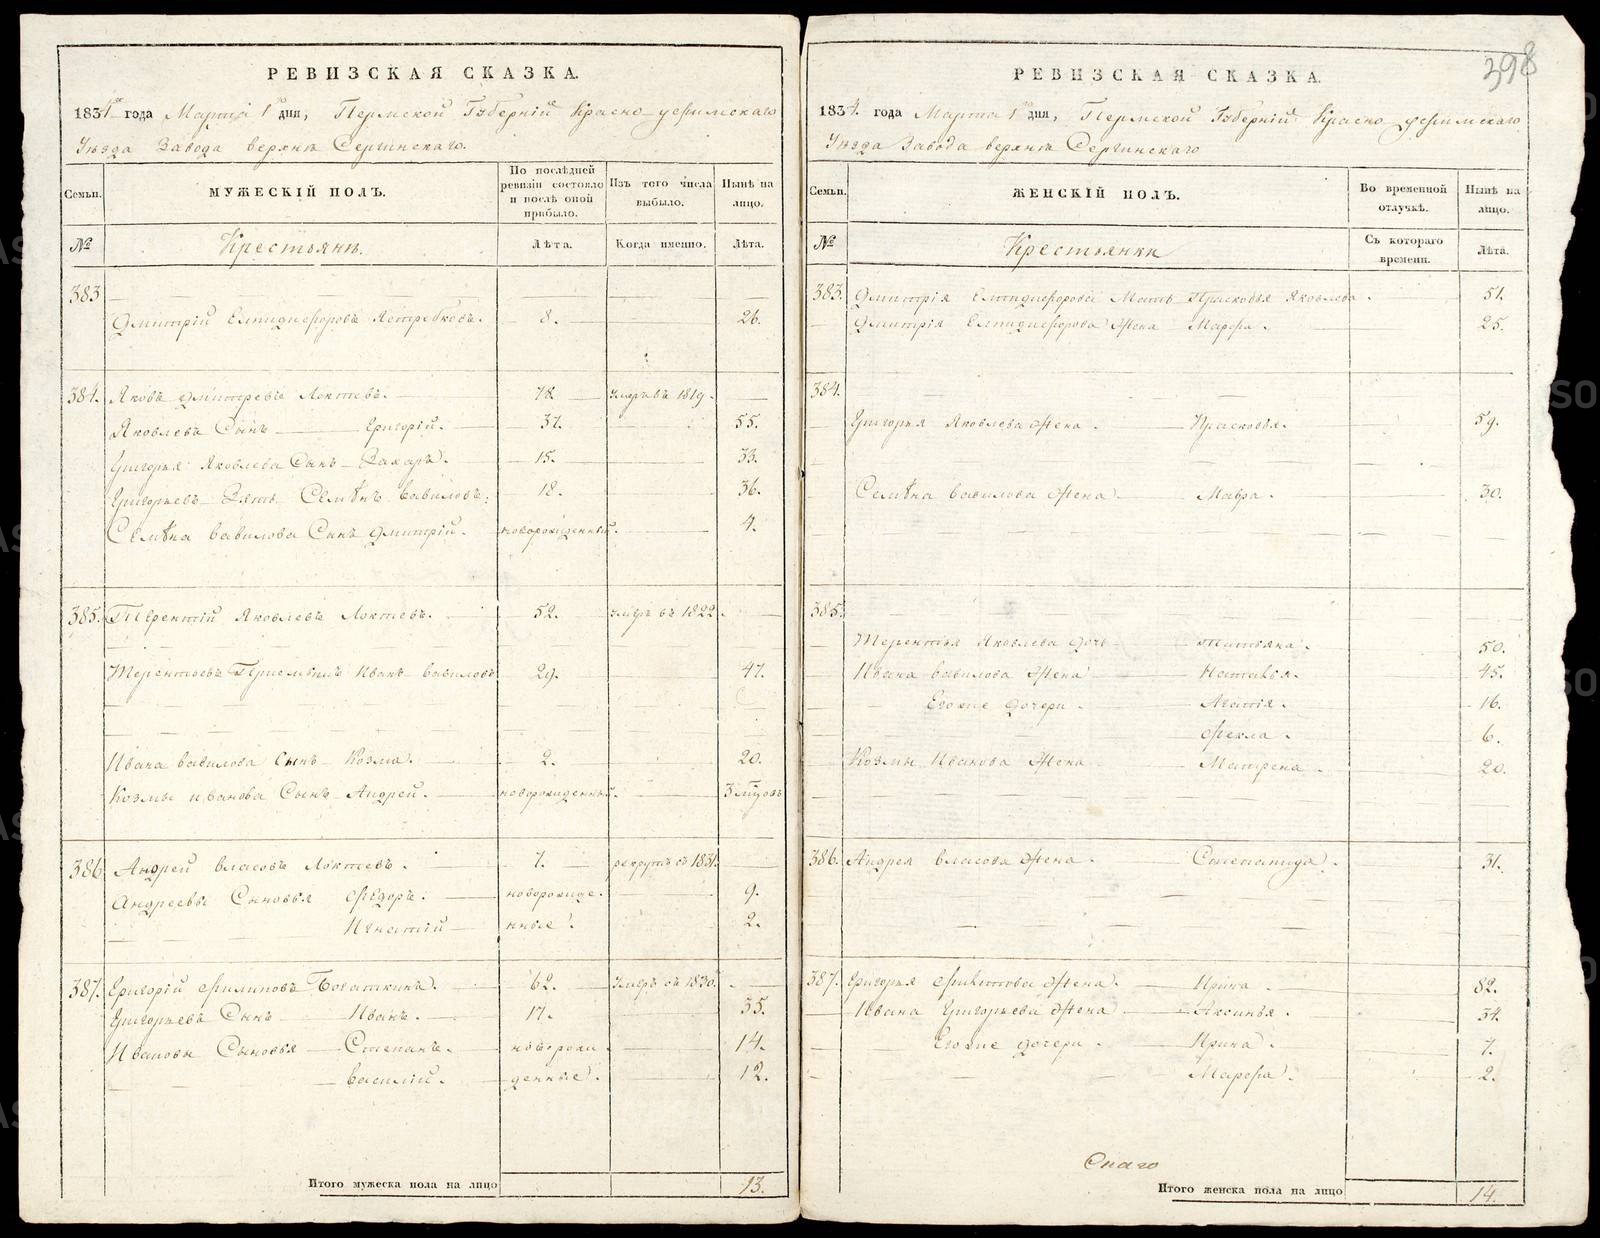 398
РЕВИЗСКАЯ СКАЗКА.
1834 года Марта 1 дня, Пермской Губерній Красно-уфимскаго
Уезда Завода верхнѣ Сергинскаго.
Семьи. МУЖЕСКІЙ ПОЛЪ. По послѣдней ревизіи состояло и послѣ оной прибыло. Изъ того числа выбыло. Нынѣ на лицо.
№ Крестьянѣ. Лѣта. Когда именно. Лѣта.
383
Дмитрій Елпидифоровъ Ястребковъ. 8. 26.
384. Яковъ Дмитревъ Локтевъ. 78 умръ въ 1819.
Яковлевъ Сынъ Григорій. 37. 55.
Григорья Яковлева Сынъ Захаръ. 15. 33.
Григорьевъ Зять Семѣнъ Вавиловъ. 18. 36.
Семѣна Вавилова Сынъ Дмитрій. новорожденный. 4.
385. Терентій Яковлевъ Локтевъ. 52. умръ въ 1822.
Терентьевъ Приемышъ Иванъ Вавиловъ 29. 47.
Ивана Вавилова Сынъ Козма. 2. 20.
Козмы Иванова Сынъ Андрей. новорожденный. 3 мцовъ
386 Андрей Власовъ Локтевъ. 7. рекрутъ съ 1831.
Андреевы Сыновья Фёдоръ. новорожде- 9.
Игнатій нные. 2.
387. Григорій Филиповъ Богаткинъ. 62. умръ въ 1830.
Григорьевъ Сынъ Иванъ. 17. 35.
Ивановы Сыновья Степанъ. новорож- 14.
Василій. денные. 12.
Итого мужеска пола на лицо 13.
РЕВИЗСКАЯ СКАЗКА.
1834. года Марта 1 дня, Пермской Губерній Красно уфимскаго
Уезда Завода верхнѣ Сергинскаго
Семьи. ЖЕНСКІЙ ПОЛЪ. Во временной отлучкѣ. Нынѣ на лицо.
№ Крестьянки Съ котораго времени. Лѣта.
383. Дмитрія Елпидифорова Мать Прасковья Яковлева. 51.
Дмитрія Елпидифорова Жена Марфа. 25.
384.
Григорья Яковлева Жена. Прасковья. 59.
Семѣна Вавилова Жена Мавра. 30.
385.
Терентья Яковлева дочь Татьяна. 50.
Ивана Вавилова Жена Наталья. 45.
Егоже дочери. Агатія. 16.
Фекла. 6.
Козмы Иванова Жена Матрена. 20.
386. Андрея Власова Жена. Степанида. 31.
387. Григорья Филипова Жена. Ирина. 82.
Ивана Григорьева Жена Аксинья. 34.
Егоже дочери. Ирина. 7.
Марфа. 2.
Итого женска пола на лицо 14.